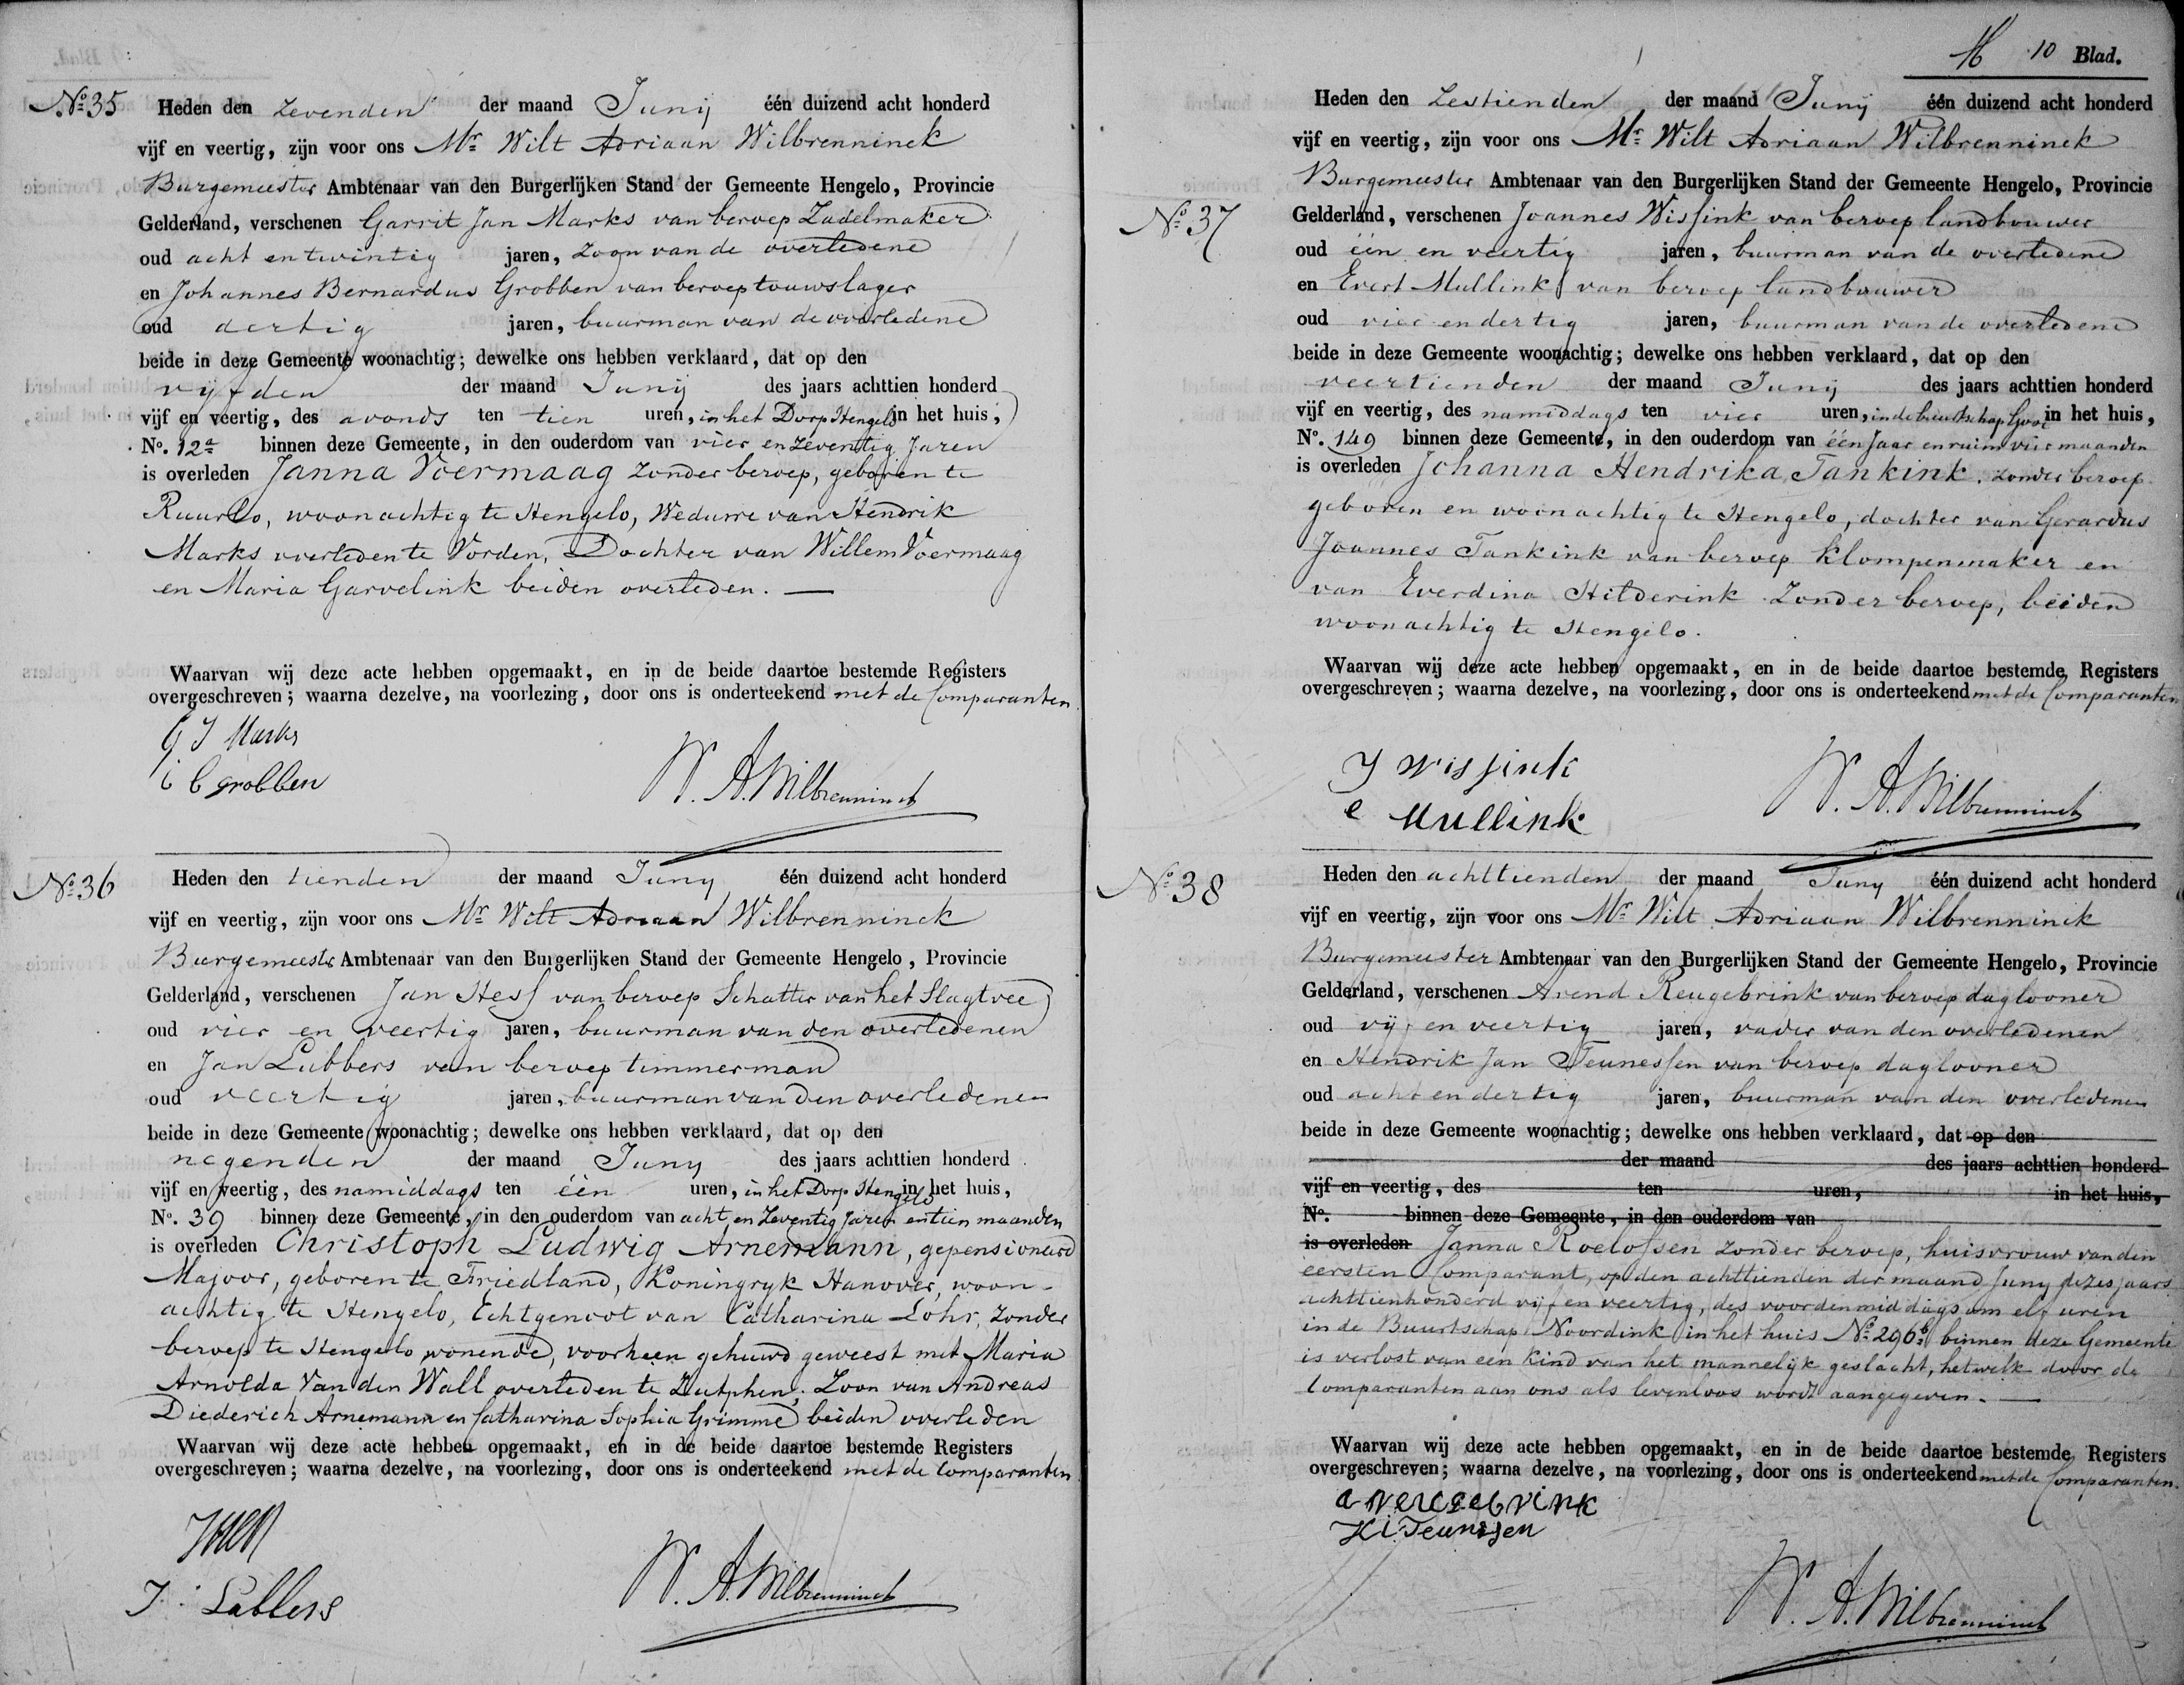 No. 35 Heden den zevenden der maand Junij één duizend acht honderd
vijf en veertig, zijn voor ons Mr. Wilt Adriaan Wilbrenninck
Burgemeester Ambtenaar van den Burgerlijken Stand der Gemeente Hengelo, Provincie
Gelderland, verschenen Garrit Jan Marks van beroep Zadelmaker
oud acht en twintig jaren, zoon van de overledene
en Johannes Bernardus Grobben van beroep touwslager
oud dertig jaren, buurman van de overledene
beide in deze Gemeente woonachtig; dewelke ons hebben verklaard, dat op den
vijfden der maand Junij des jaars achttien honderd
vijf en veertig, des avonds ten tien uren, in het Dorp Hengelo in het huis,
No. 12a binnen deze Gemeente, in den ouderdom van vier en zeventig Jaren
is overleden Janna Voermaag zonder beroep, geboren te
Ruurlo, woonachtig te Hengelo, Weduwe van Hendrik
Marks overleden te Vorden, Dochter van Willem Voermaag
en Maria Garvelink beiden overleden. —
Waarvan wij deze acte hebben opgemaakt, en in de beide daartoe bestemde Registers
overgeschreven; waarna dezelve, na voorlezing, door ons is onderteekend met de Comparanten.
G J Marks
i b grobben
W. A. Wilbrenninck
No. 36 Heden den tienden der maand Juny één duizend acht honderd
vijf en veertig, zijn voor ons Mr. Wilt Adriaan Wilbrenninck
Burgemeester Ambtenaar van den Burgerlijken Stand der Gemeente Hengelo, Provincie
Gelderland, verschenen Jan Hess van beroep Schatter van het Slagtvee
oud vier en veertig jaren, buurman van den overledenen
en Jan Lubbers van beroep timmerman
oud veertig jaren, buurman van den overledenen
beide in deze Gemeente woonachtig; dewelke ons hebben verklaard, dat op den
negenden der maand Juny des jaars achttien honderd
vijf en veertig, des namiddags ten één uren, in het Dorp Hengelo in het huis,
No. 39 binnen deze Gemeente, in den ouderdom van acht en Zeventig Jaren en tien maanden
is overleden Christoph Ludwig Arnemann, gepensioneerd
Majoor, geboren te Friedland, Koningryk Hanover, woon-
achtig te Hengelo, Echtgenoot van Catharina Lohr, zonder
beroep te Hengelo wonende, voorheen gehuwd geweest met Maria
Arnolda Van den Wall overleden te Zutphen, Zoon van Andreas
Diederich Arnemann en Catharina Sophia Grimme beiden overleden
Waarvan wij deze acte hebben opgemaakt, en in de beide daartoe bestemde Registers
overgeschreven; waarna dezelve, na voorlezing, door ons is onderteekend met de Comparanten.
J Hess
J. Lubbers
W. A. Wilbrenninck
10 Blad.
Heden den Zestienden der maand Junij één duizend acht honderd
vijf en veertig, zijn voor ons Mr. Wilt Adriaan Wilbrenninck
Burgemeester Ambtenaar van den Burgerlijken Stand der Gemeente Hengelo, Provincie
No. 37 Gelderland, verschenen Joannes Wissink van beroep landbouwer
oud één en veertig jaren, buurman van de overledene
en Evert Mullink van beroep landbouwer
oud vier en dertig jaren, buurman van de overledene
beide in deze Gemeente woonachtig; dewelke ons hebben verklaard, dat op den
veertienden der maand Junij des jaars achttien honderd
vijf en veertig, des namiddags ten vier uren, in de buurtschap Gooi in het huis,
No. 149 binnen deze Gemeente, in den ouderdom van één Jaar en ruim vier maanden
is overleden Johanna Hendrika Tankink, zonder beroep
geboren en woonachtig te Hengelo, dochter van Gerardus
Joannes Tankink van beroep klompenmaker en
van Everdina Hilderink Zonder beroep, beiden
woonachtig te Hengelo.
Waarvan wij deze acte hebben opgemaakt, en in de beide daartoe bestemde Registers
overgeschreven; waarna dezelve, na voorlezing, door ons is onderteekend met de Comparanten
J Wissink
e Mullink
W. A. Wilbrenninck
No. 38 Heden den achttienden der maand Juny één duizend acht honderd
vijf en veertig, zijn voor ons Mr. Wilt Adriaan Wilbrenninck
Burgemeester Ambtenaar van den Burgerlijken Stand der Gemeente Hengelo, Provincie
Gelderland, verschenen Arend Reugebrink van beroep daglooner
oud vijf en veertig jaren, vader van den overledenen
en Hendrik Jan Teunessen van beroep daglooner
oud acht en dertig jaren, buurman van den overledenen
beide in deze Gemeente woonachtig; dewelke ons hebben verklaard, dat op den
der maand des jaars achttien honderd
vijf en veertig, des ten uren, in het huis,
No. binnen deze Gemeente, in den ouderdom van
is overleden Janna Roelofsen zonder beroep, huisvrouw van den
eersten Comparant, op den achttienden der maand Juny dezes jaars
achttienhonderd vijf en veertig, des voordenmiddags om elf uren
in de Buurtschap Noordink in het huis No. 296b binnen deze Gemeente
is verlost van een Kind van het mannelijk geslacht, hetwelk door de
Comparanten aan ons als levenloos wordt aangegeven. —
Waarvan wij deze acte hebben opgemaakt, en in de beide daartoe bestemde Registers
overgeschreven; waarna dezelve, na voorlezing, door ons is onderteekend met de Comparanten.
a reugebrink
H i Teunissen
W. A. Wilbrenninck